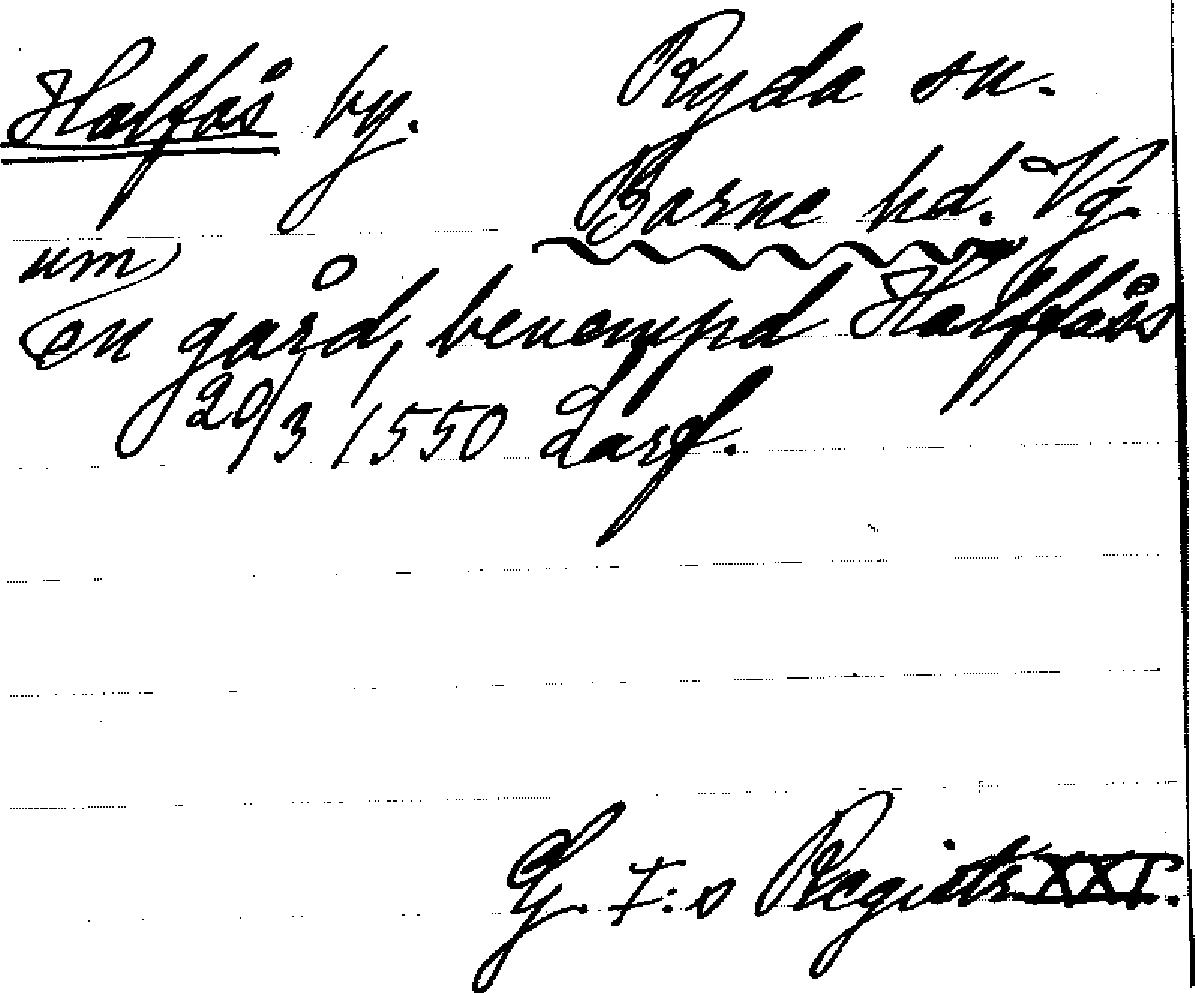 Halfås by. Ryda sn.
Barne hd. Vg.
um
en gård, benempd Halffåss
20/3 1550 Larf.
G. I:s Registr. XXI.